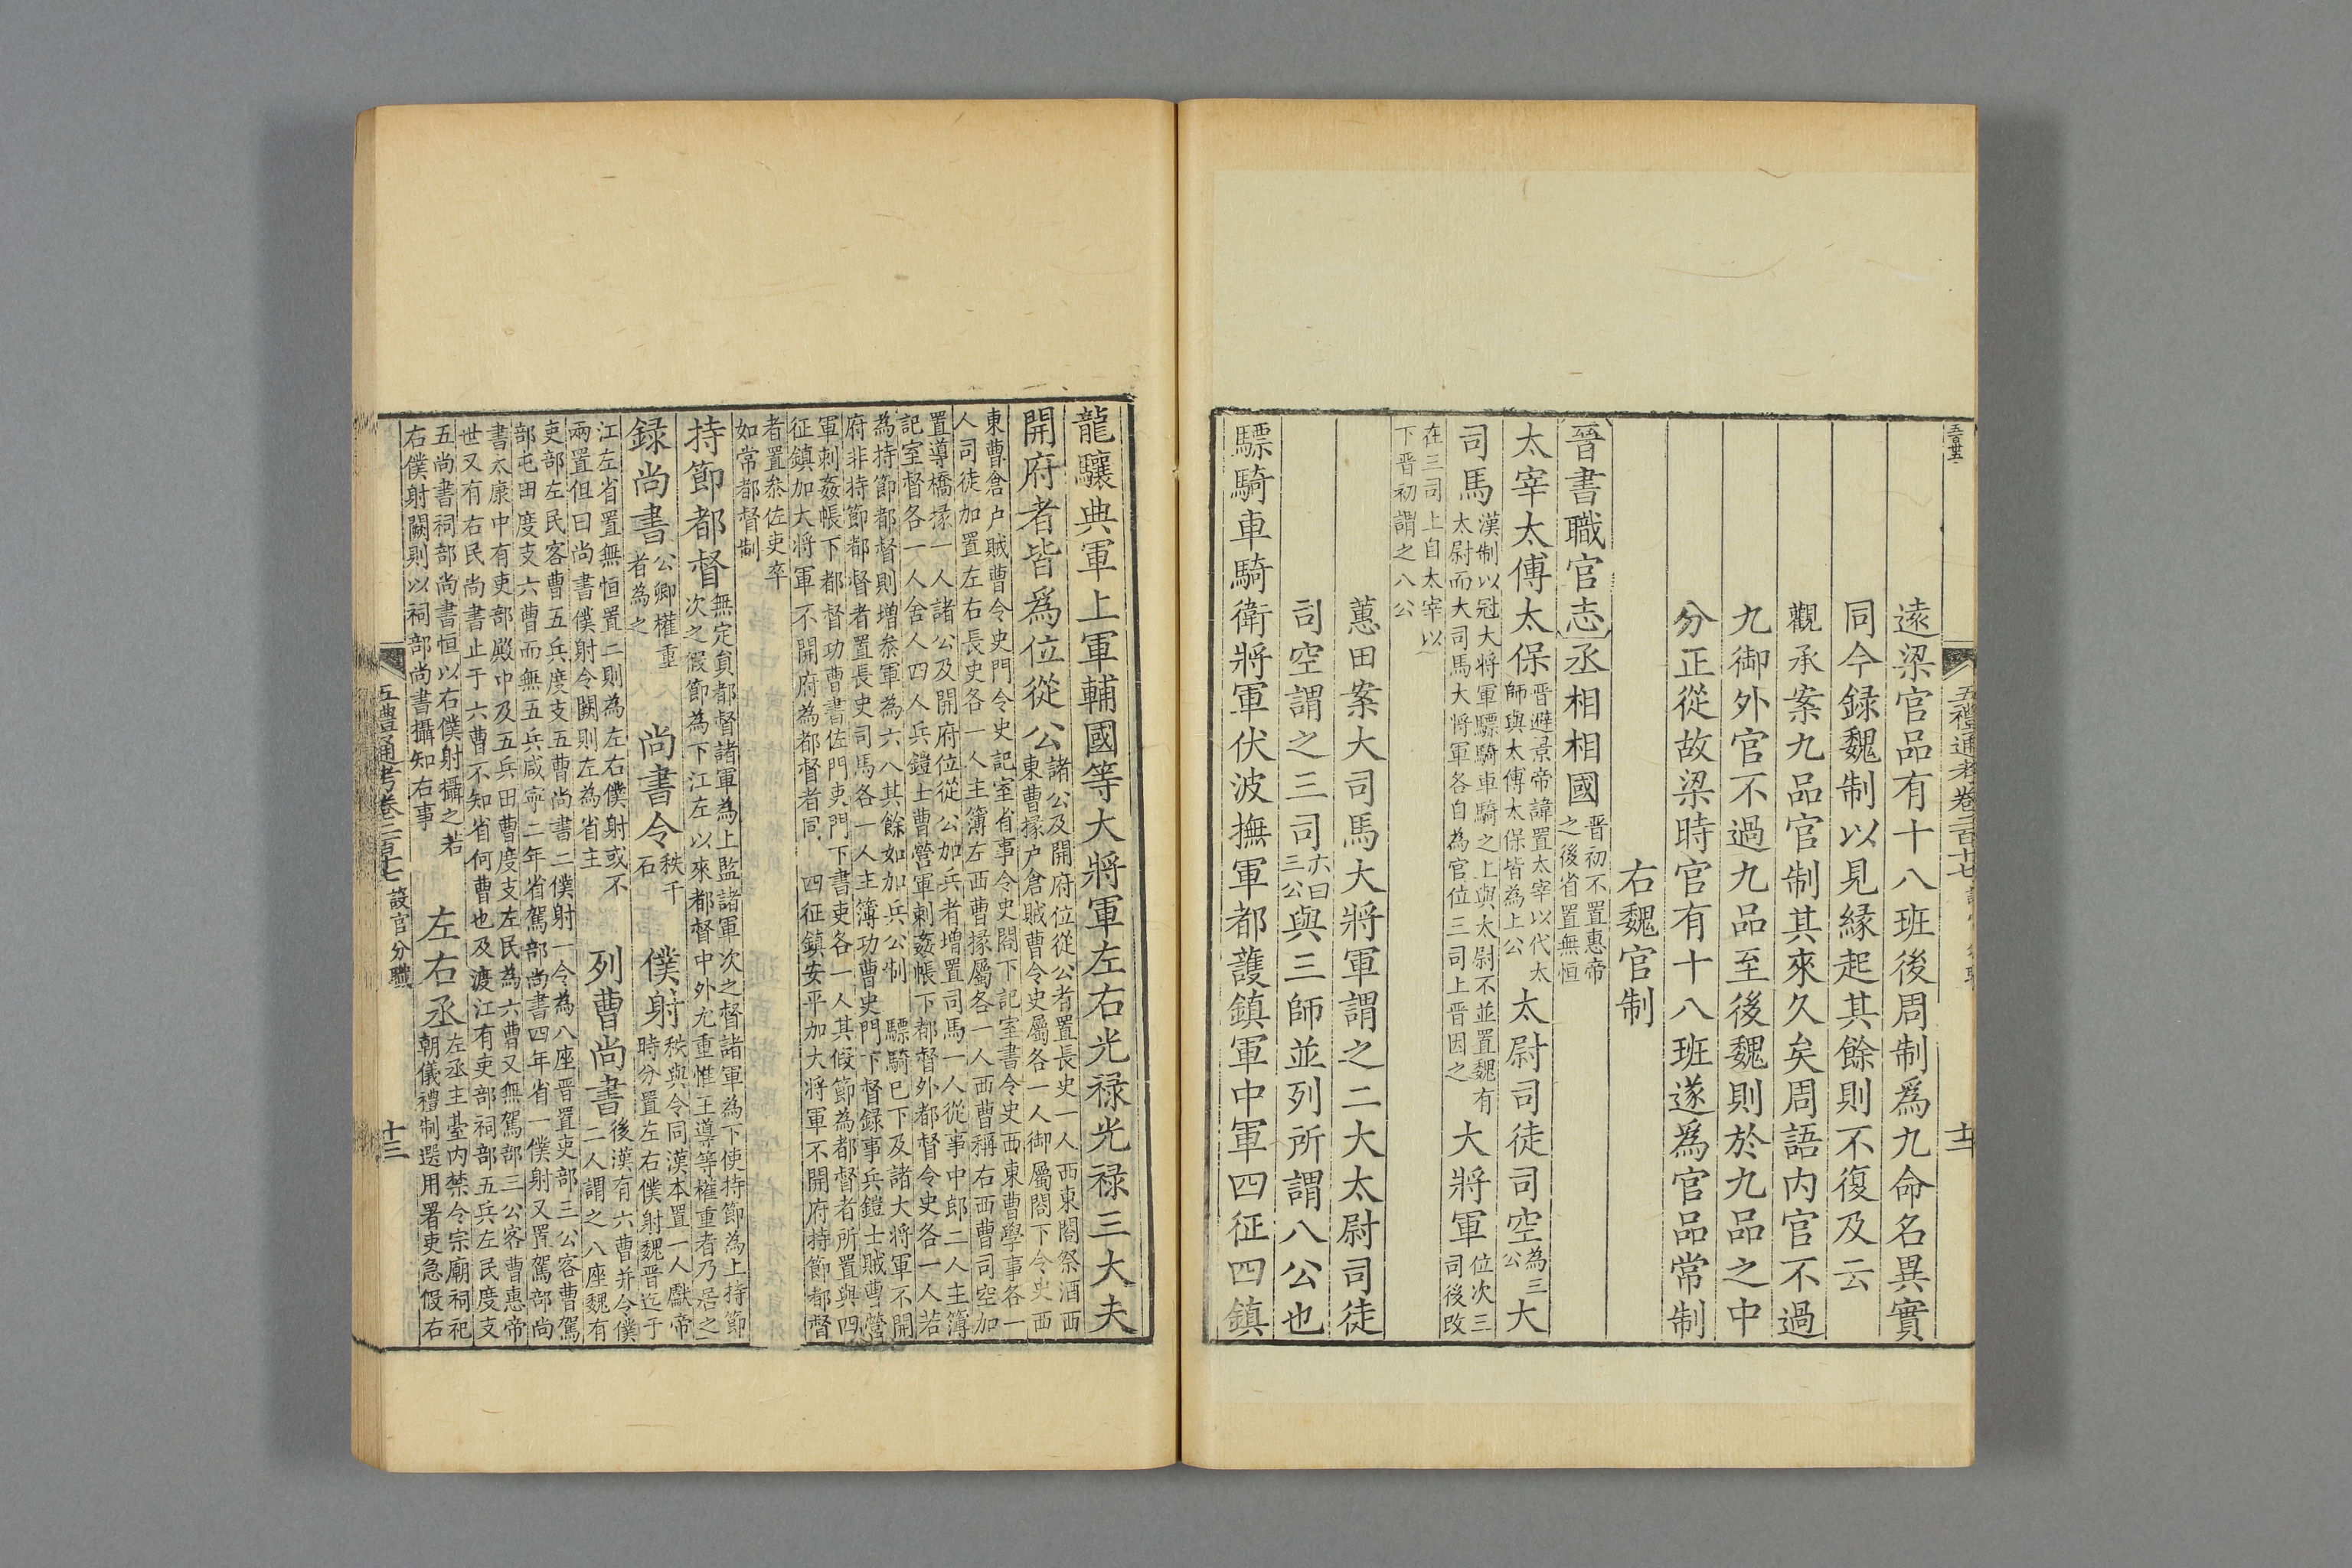 五百廿五
五禮通考卷二百十七
十二
逺梁官品有十八班後周制爲九命名異實
同今録魏制以見縁起其餘則不復及云
觀承案九品官制其來久矣周語内官不過
九御外官不過九品至後魏則於九品之中
分正從故梁時官有十八班遂爲官品常制
右魏官制
晉書職官志丞相相國晉初不置惠帝
之後省置無恒
太宰太傅太保晉避景帝諱置太宰以代太
師與太傅太保皆為上公
太尉司徒司空為三
公
大
司馬漢制以冠大将軍驃騎車騎之上與太尉不並置魏有
太尉而大司馬大将軍各自為官位三司上晋因之
大將軍位次三
司後改
在三司上自太宰以
下晋初謂之八公
蕙田案大司馬大將軍謂之二大太尉司徒
司空謂之三司六曰
三公
與三師並列所謂八公也
驃騎車騎衛將軍伏波撫軍都護鎮軍中軍四征四鎮
龍驤典軍上軍輔國等大將軍左右光禄光禄三大夫
開府者皆爲位從公諸公及開府位從公者置長史一人西東閤祭酒西
東曹掾户倉賊曹令史屬各一人御屬閤下令史西
東曹倉户賊曹令史門令史記室省事令史閤下記室書令史西東曹學事各一
人司徒加置左右長史各一人主簿左西曹掾屬各一人西曹稱右西曹司空加
置導橋掾一人諸公及開府位從公加兵者增置司馬一人從事中郎二人主簿
記室督各一人舎人四人兵鎧士曹營軍刺姦帳下都督外都督令史各一人若
為持節都督則增叅軍為六人其餘如加兵公制
驃騎已下及諸大将軍不開
府非持節都督者置長史司馬各一人主簿功曹史門下督録事兵鎧士賊曹營
軍刺姦帳下都督功曹書佐門吏門下書吏各一人其假節為都督者所置與四
征鎮加大将軍不開府為都督者同
四征鎮安平加大将軍不開府持節都督
者置叅佐吏卒
如常都督制
持節都督無定員都督諸軍為上監諸軍次之督諸軍為下使持節為上持節
次之假節為下江左以來都督中外尤重惟王導等權重者乃居之
録尚書公卿權重
者為之
尚書令秩千
石
僕射秩與令同漢本置一人獻帝
時分置左右僕射魏晋迄于
江左省置無恒置二則為左右僕射或不
兩置但曰尚書僕射令闕則左為省主
列曹尚書後漢有六曹并令僕
二人謂之八座魏有
吏部左民客曹五兵度支五曹尚書二僕射一令為八座晋置吏部三公客曹駕
部屯田度支六曹而無五兵咸寧二年省駕部尚書四年省一僕射又置駕部尚
書太康中有吏部殿中及五兵田曹度支左民為六曹又無駕部三公客曹惠帝
世又有右民尚書止于六曹不知省何曹也及渡江有吏部祠部五兵左民度支
五尚書祠部尚書恒以右僕射攝之若
右僕射闕則以祠部尚書攝知右事
左右丞左丞主臺内禁令宗廟祠祀
朝儀禮制選用署吏急假右
五禮通考卷二百十七 設官分職
十三